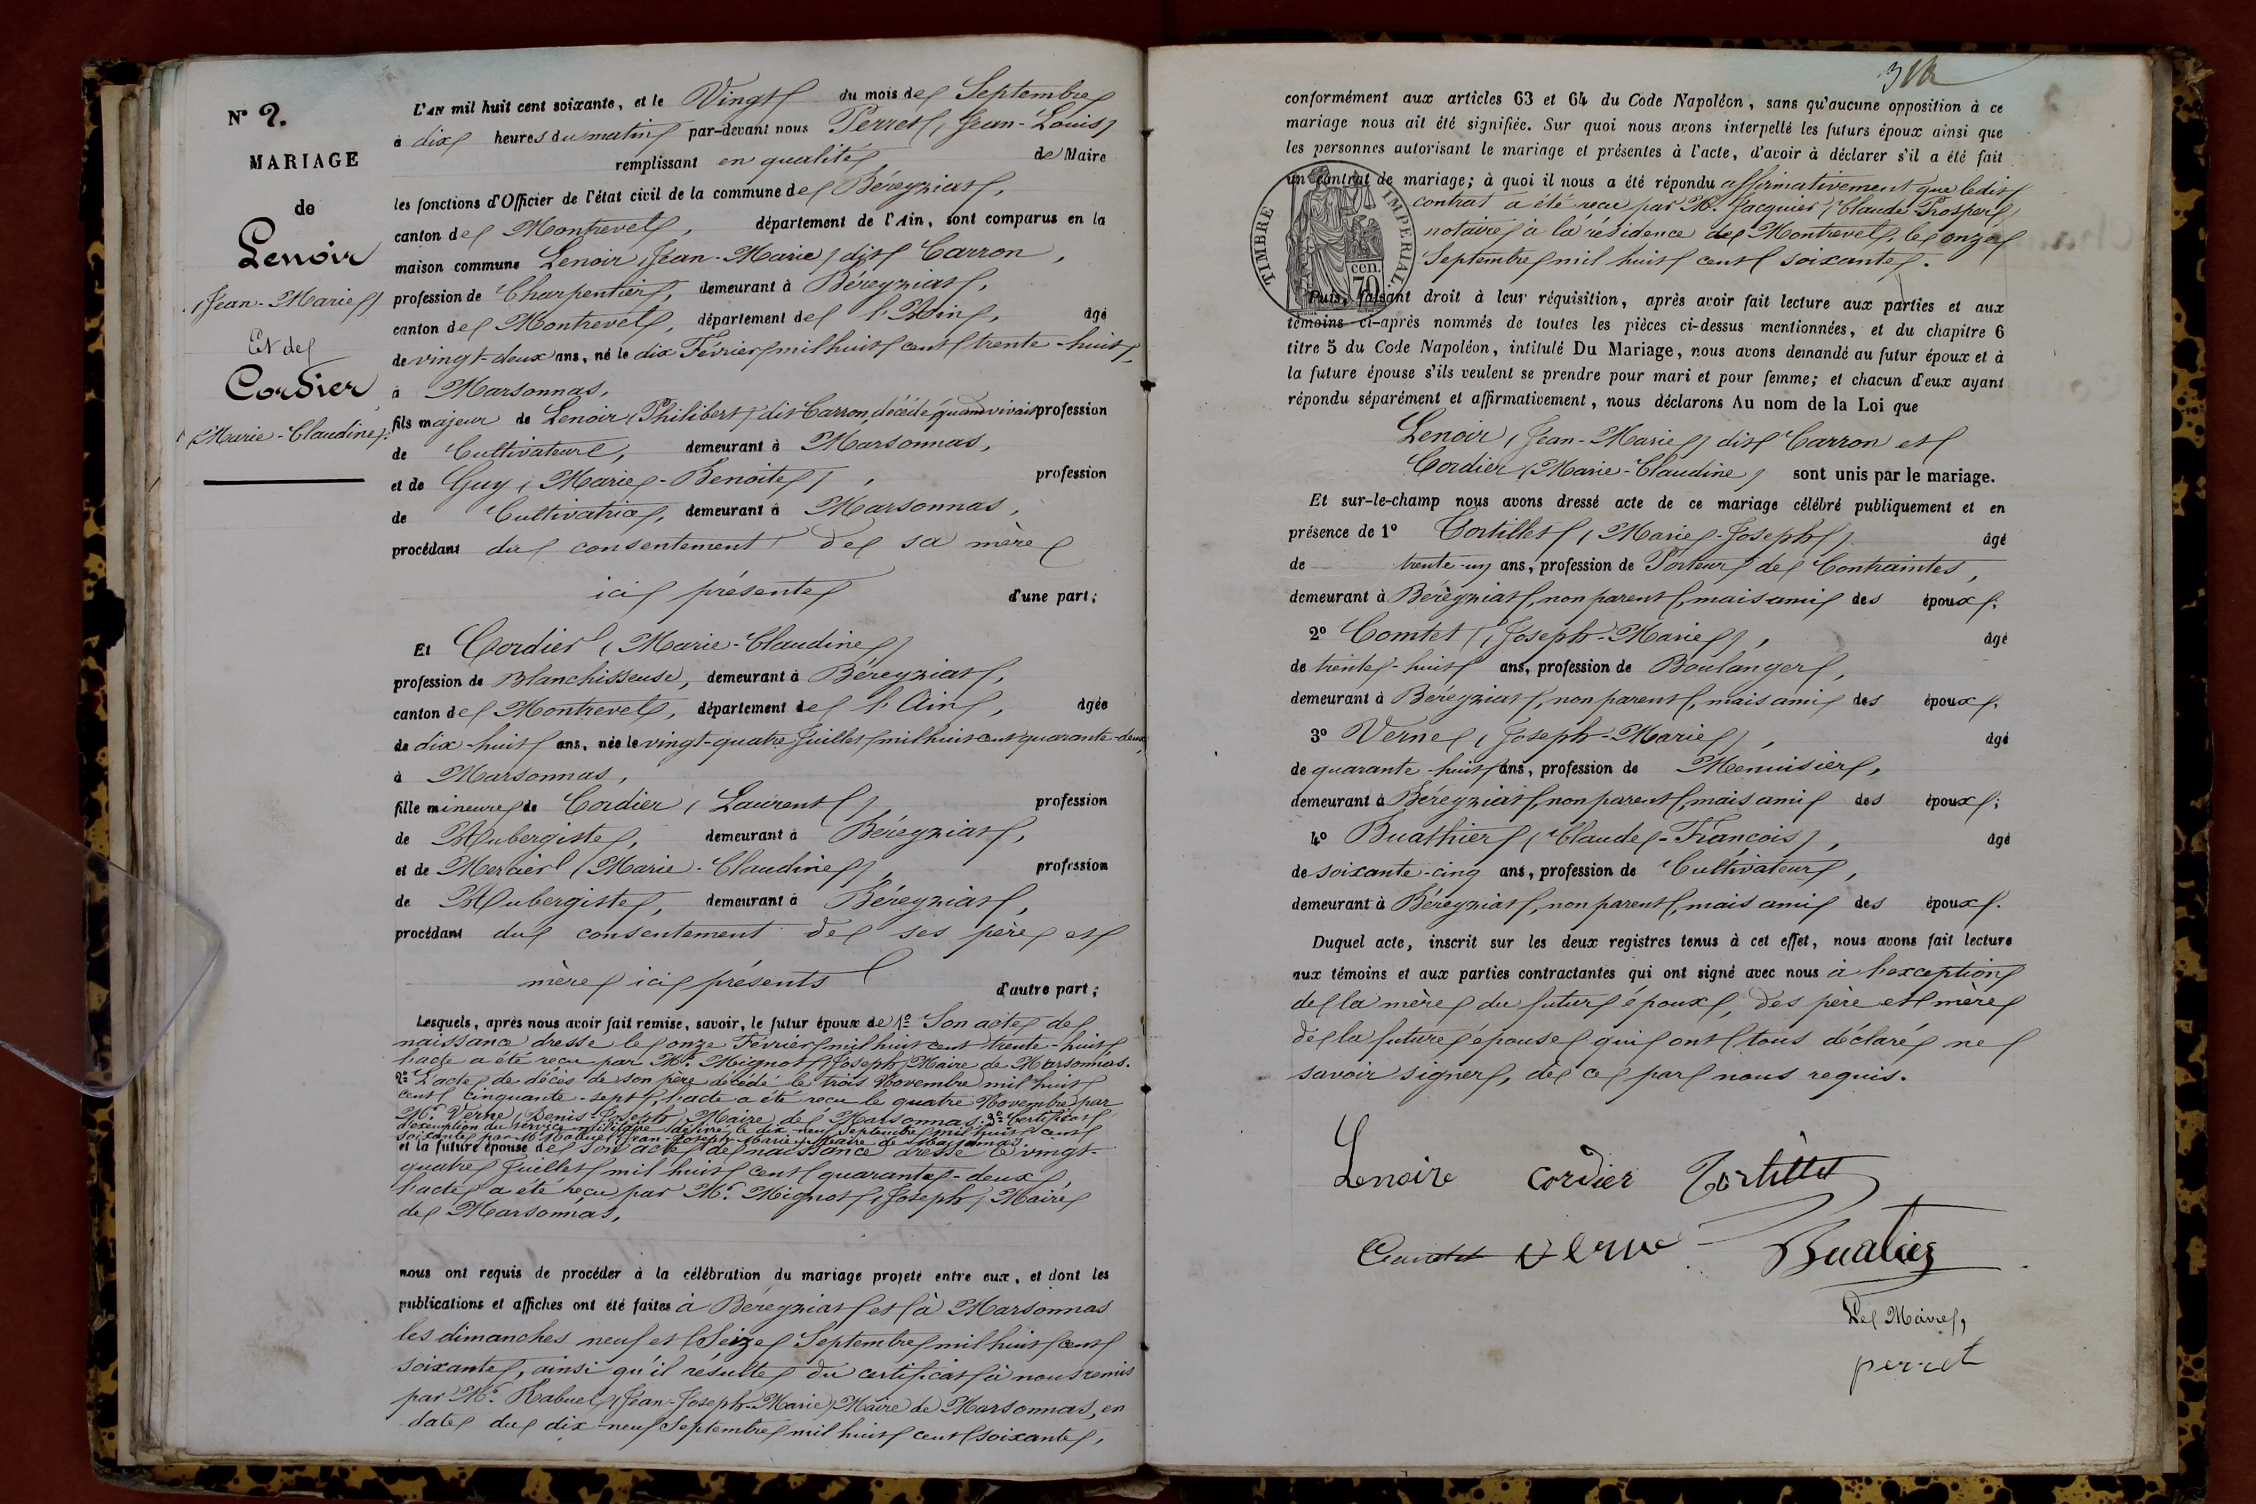 N° 9.
MARIAGE
de
Lenoir
(Jean-Marie)
Et de
Cordier
(Marie-Claudine).
L'AN mil huit cent soixante, et le Vingt du mois de Septembre
à dix heures du matin par-devant nous Perret (Jean-Louis)
remplissant en qualité de Maire
les fonctions d'Officier de l'état civil de la commune de Béreyziat,
canton de Montrevel, département de l'Ain, sont comparus en la
maison commune Lenoir (Jean-Marie) dit Carron,
profession de Charpentier, demeurant à Béreyziat,
canton de Montrevel, département de l'Ain, âgé
de vingt-deux ans, né le dix Février mil huit cent trente-huit
à Marsonnas,
fils majeur de Lenoir (Philibert) dit Carron, décédé, quand vivait profession
de Cultivateur, demeurant à Marsonnas,
et de Guy (Marie-Benoite), profession
de Cultivatrice, demeurant à Marsonnas,
procédant du consentement de sa mère
ici présente d'une part;
Et Cordier (Marie-Claudine)
profession de Blanchisseuse, demeurant à Béreyziat,
canton de Montrevel, département de l'Ain, âgée
de dix-huit ans, née le vingt-quatre Juillet mil huit cent quarante-deux
à Marsonnas,
fille mineure de Cordier (Laurent), profession
de Aubergiste, demeurant à Béreyziat,
et de Mercier (Marie-Claudine), profession
de Aubergiste, demeurant à Béreyziat,
procédant du consentement de ses père et
mère ici présents d'autre part;
Lesquels, après nous avoir fait remise, savoir, le futur époux de 1° Son acte de
naissance dressé le onze Février mil huit cent trente-huit
l'acte a été reçu par Mr. Mignot (Joseph) Maire de Marsonnas.
2° L'acte de décès de son père décédé le trois Novembre mil huit
cent cinquante-sept, l'acte a été reçu le quatre Novembre par
Mr. Verne (Denis-Joseph) Maire de Marsonnas. 3° Certificat
d'exemption du service militaire délivré le dix-neuf Septembre mil huit cent
soixante par Mr Rabuel (Jean-Joseph-Marie) Maire de Marsonnas
et la future épouse de Son acte de naissance dressé le vingt-
quatre Juillet mil huit cent quarante-deux,
l'acte a été reçu par Mr. Mignot (Joseph) Maire
de Marsonnas,
nous ont requis de procéder à la célébration du mariage projeté entre eux, et dont les
publications et affiches ont été faites à Béreyziat et à Marsonnas
les dimanches neuf et Seize Septembre mil huit cent
soixante, ainsi qu'il résulte du certificat à nous remis
par Mr. Rabuel (Jean-Joseph-Marie) Maire de Marsonnas, en
date du dix-neuf Septembre mil huit cent soixante,
conformément aux articles 63 et 64 du Code Napoléon, sans qu'aucune opposition à ce
mariage nous ait été signifiée. Sur quoi nous avons interpellé les futurs époux ainsi que
les personnes autorisant le mariage et présentes à l'acte, d'avoir à déclarer s'il a été fait
un contrat de mariage; à quoi il nous a été répondu affirmativement que ledit
contrat a été reçu par Mr. Jacquier (Claude-Prosper)
notaire à la résidence de Montrevel, le onze
Septembre mil huit cent soixante.
TIMBRE IMPERIAL
cen.
70
Puis, faisant droit à leur réquisition, après avoir fait lecture aux parties et aux
témoins ci-après nommés de toutes les pièces ci-dessus mentionnées, et du chapitre 6
titre 5 du Code Napoléon, intitulé Du Mariage, nous avons demandé au futur époux et à
la future épouse s'ils veulent se prendre pour mari et pour femme; et chacun d'eux ayant
répondu séparément et affirmativement, nous déclarons Au nom de la Loi que
Lenoir (Jean-Marie) dit Carron et
Cordier (Marie-Claudine) sont unis par le mariage.
Et sur-le-champ nous avons dressé acte de ce mariage célébré publiquement et en
présence de 1° Tortillet (Marie-Joseph) âgé
de trente-un ans, profession de Porteur de Contraintes,
demeurant à Béreyziat, non parent, mais ami des époux.
2° Comtet (Joseph-Marie), âgé
de trente-huit ans, profession de Boulanger,
demeurant à Béreyziat, non parent, mais ami des époux.
3° Verne (Joseph-Marie), âgé
de quarante-huit ans, profession de Menuisier,
demeurant à Béreyziat, non parent, mais ami des époux;
4° Buathier (Claude-François), âgé
de soixante-cinq ans, profession de Cultivateur,
demeurant à Béreyziat, non parent, mais ami des époux.
Duquel acte, inscrit sur les deux registres tenus à cet effet, nous avons fait lecture
aux témoins et aux parties contractantes qui ont signé avec nous à l'exception
de la mère du futur époux, des père et mère
de la future épouse qui ont tous déclaré ne
savoir signer, de ce par nous requis.
Lenoire cordier Tortillet
Comtet verne Buatiez
Le Maire,
perret